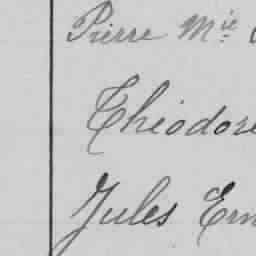 Pierre Mie
Théodore
Jules Ern